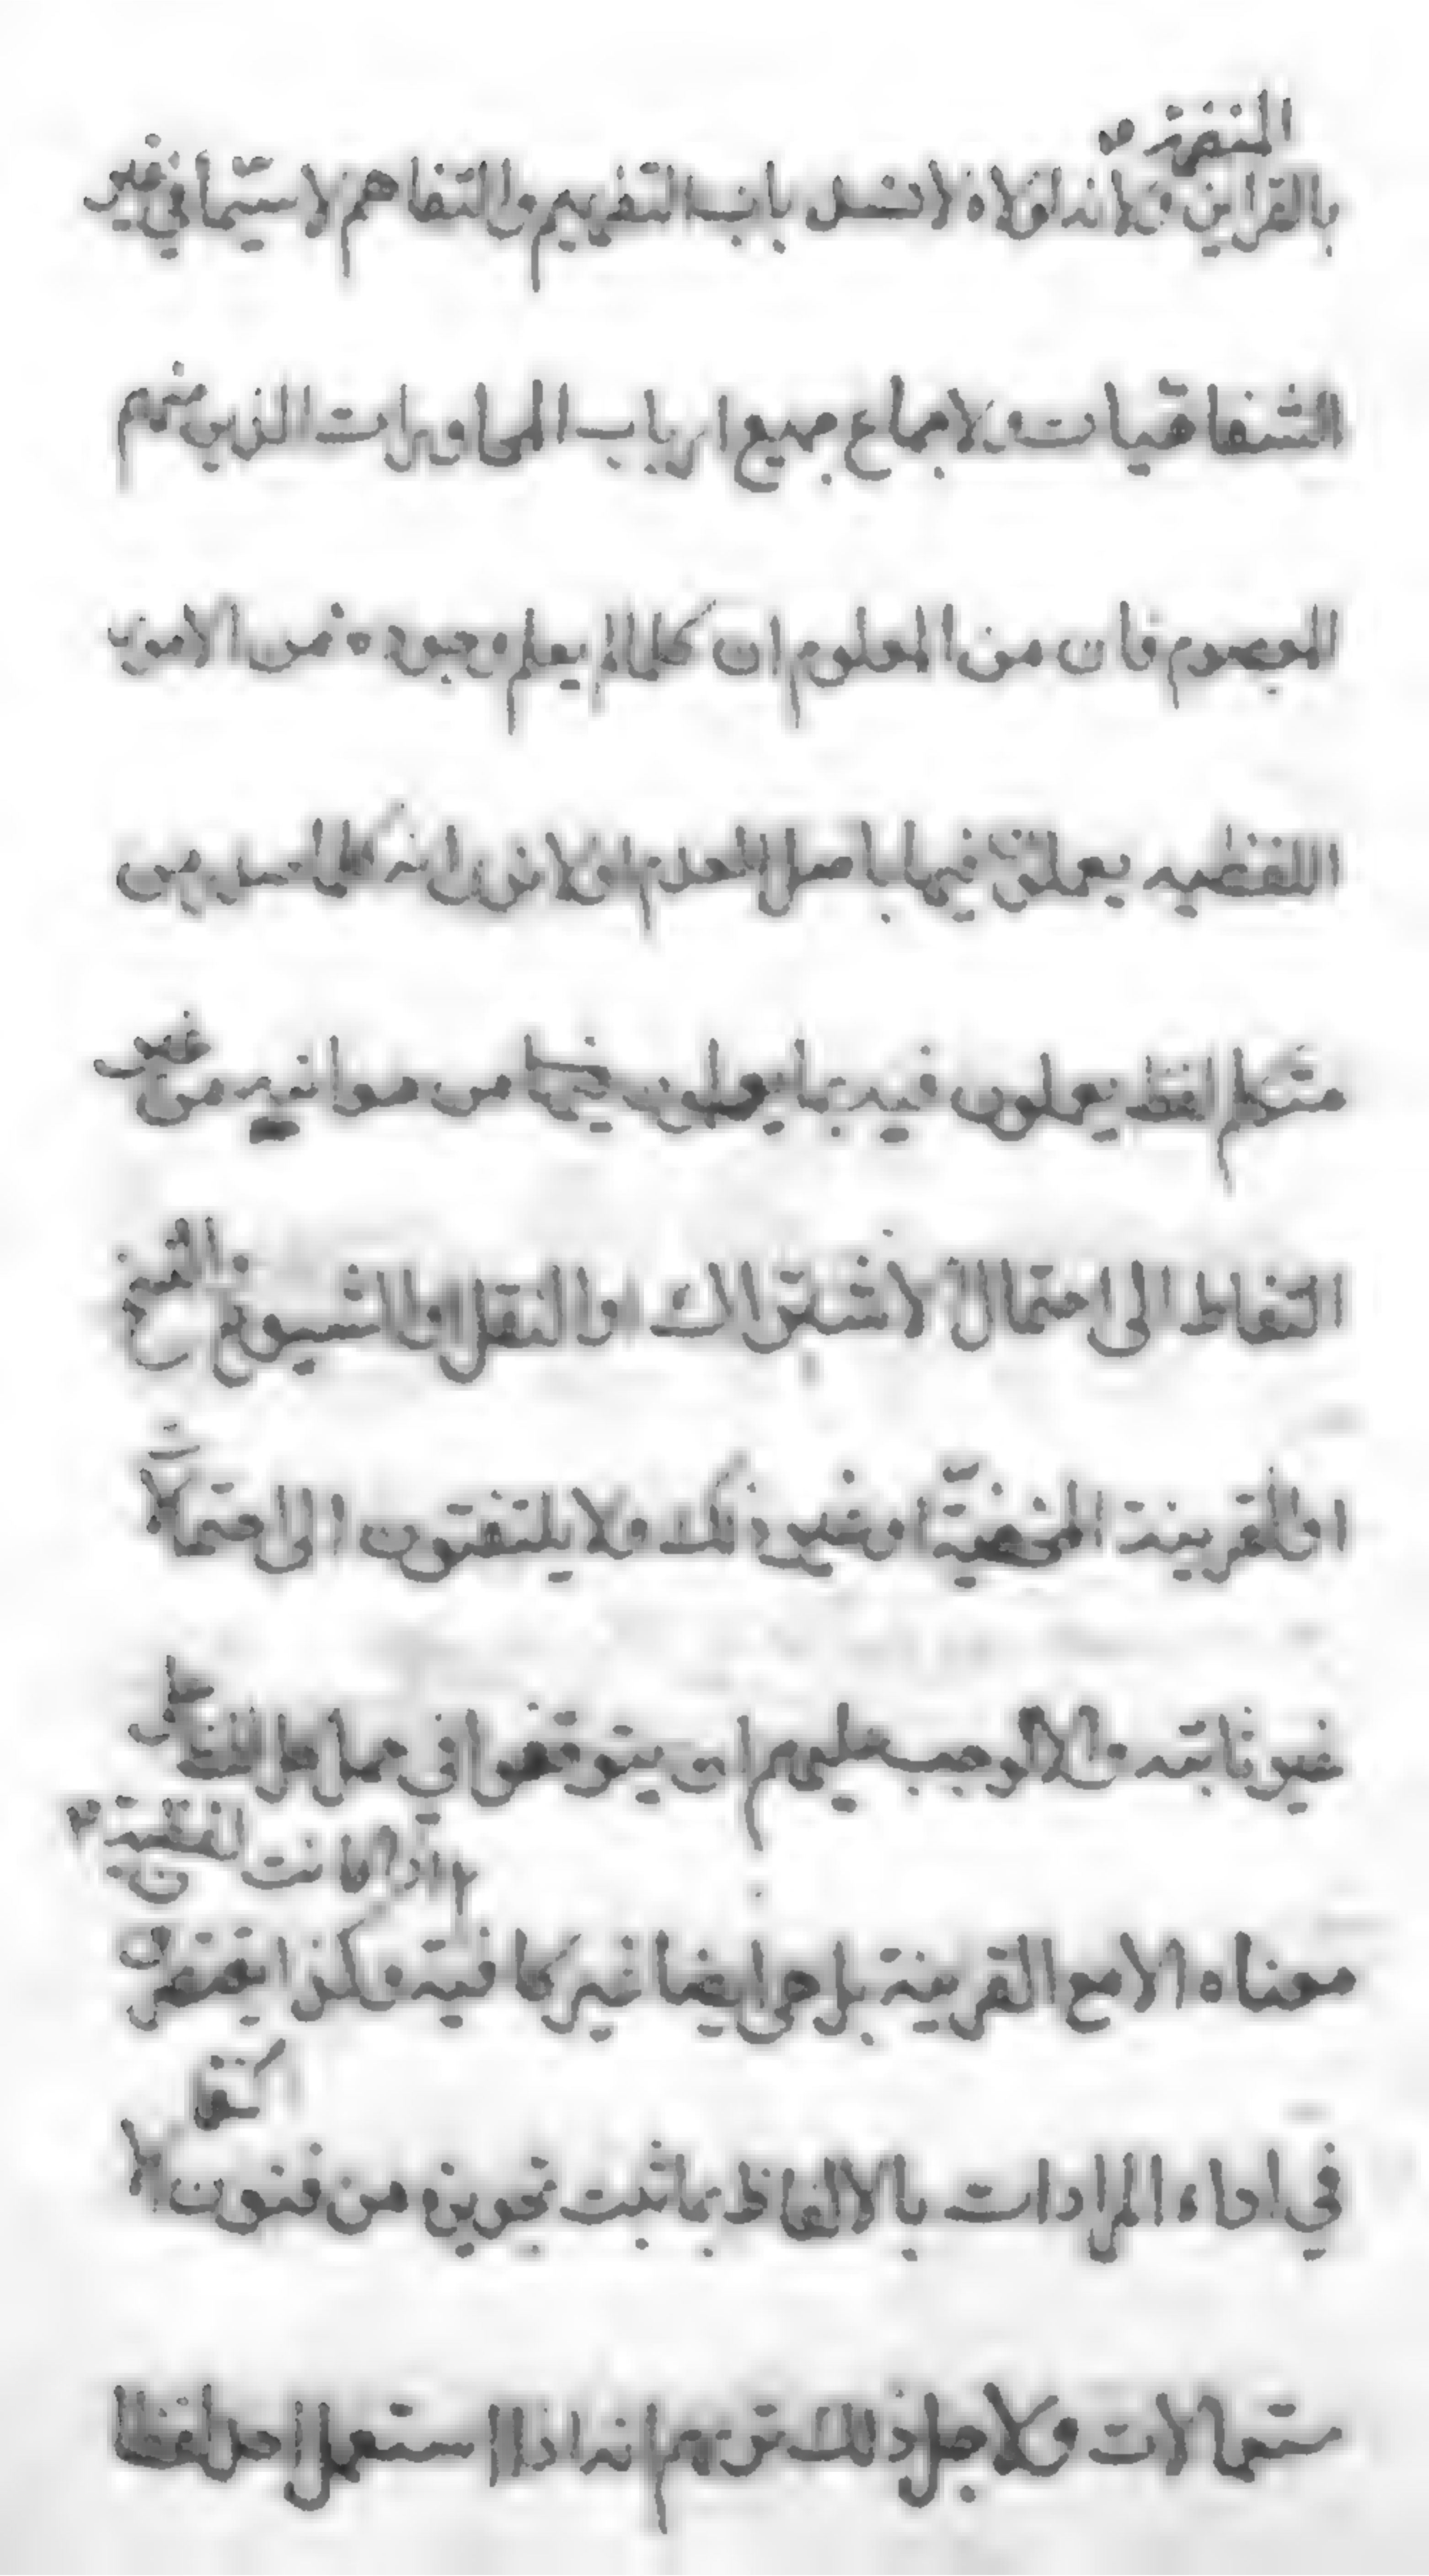 المنضمة
بالقراين ولانه لولاه لانسد باب التفهيم والتفاهم لا سيّما في غير
الشفاهيات ولاجماع جميع ارباب المحاورات الذين منهم
المعصوم فان من المعلوم ان كلما لم يعلم وجوده من الامور
اللفظيه يعملون فيها باصل العدم ولا نزل انه كلما صدر من
متكلم لفظ يعملون فيه بما يعملون فيها من معانيه من غير
التفات الى احتمال الاشتراك او النقل او النسخ
او القرينة المخفيّة او غير ذلك ولا يلتفتون الى احتمالا
غير ثابته والا لوجب عليهم ان يتوقفوا في حمل اللفظ على
واذا كانت اللفظية
معناه الا مع القرينة بل هي ايضا غير كافيته وكذا يقتصرون
في اداء المرادات بالالفاظ بما ثبت تجويزه من فنون الا
ستعمالات ولاجل ذلك ترىهم انه اذا استعمل احد لفظا